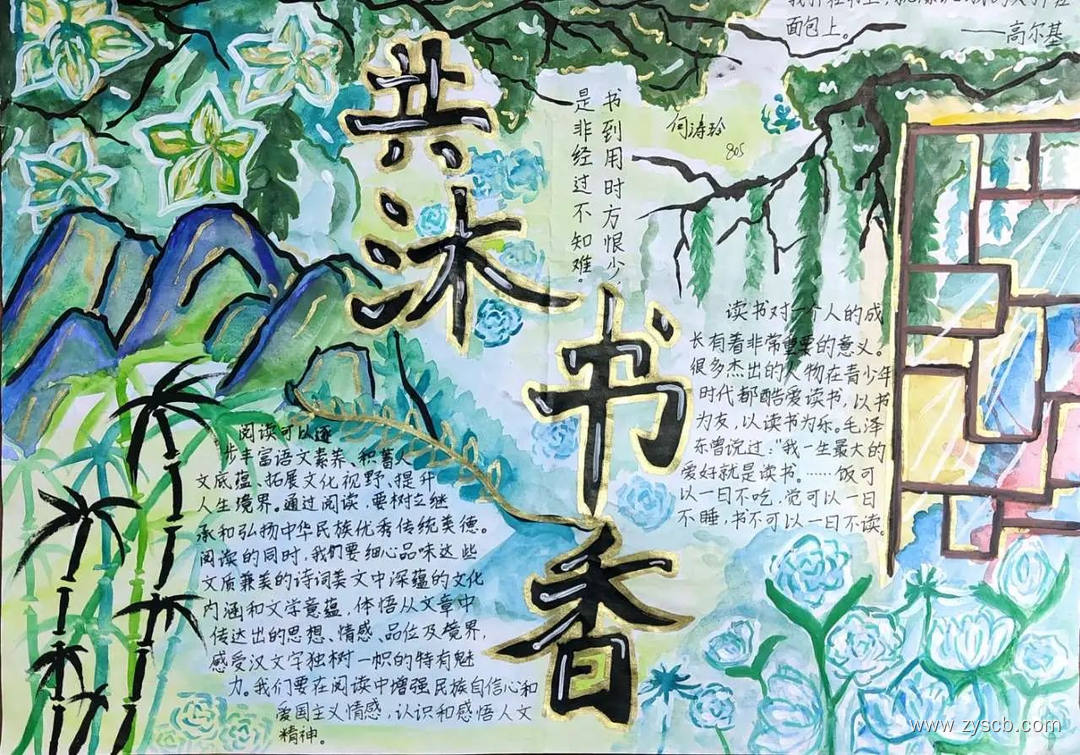 共沐书香
面包上。
——高尔基
书到用时方恨少，
是非经过不知难。
何涛玲
805
读书对一个人的成
长有着非常重要的意义。
很多杰出的人物在青少年
时代都酷爱读书，以书
为友，以读书为乐。毛泽
东曾说过："我一生最大的
爱好就是读书。……饭可
以一日不吃，觉可以一日
不睡，书不可以一日不读。
阅读可以逐
步丰富语文素养、积蓄人
文底蕴、拓展文化视野、提升
人生境界。通过阅读，要树立继
承和弘扬中华民族优秀传统美德。
阅读的同时，我们要细心品味这些
文质兼美的诗词美文中深蕴的文化
内涵和文学意蕴，体悟从文章中
传达出的思想、情感、品位及境界，
感受汉文字独树一帜的特有魅
力。我们要在阅读中增强民族自信心和
爱国主义情感，认识和感悟人文
精神。
www.zyscb.com